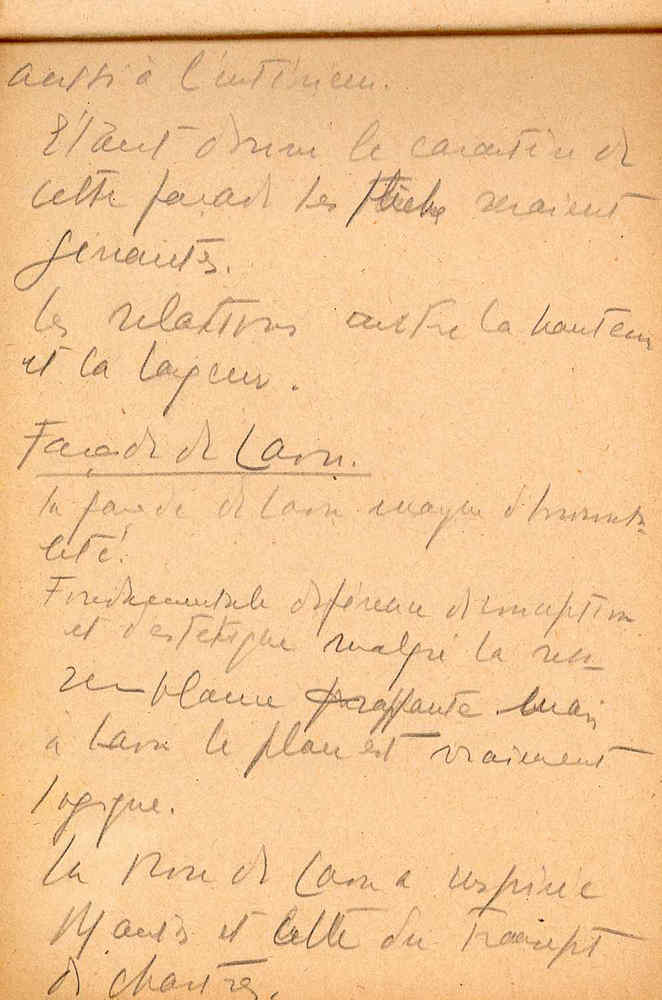 aussi à l'intérieur.
Etant donné le caractère de
cette façade les flèches seraient
gênantes.
les relations entre la hauteur
et la largeur.
Façade de Laon.
la façade de Laon manque d'horizonta-
lité.
Fondamentale différence de conception
et d'esthétique malgré la res-
semblance frappante. Mais
à Laon le plan est vraiment
logique.
La rose de Laon a inspiré
Mantes et celle du Transept
de Chartres.